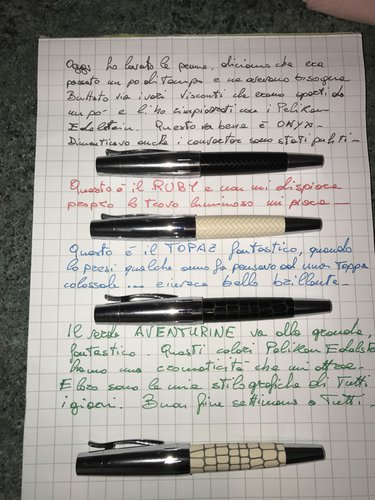 Oggi ho lavato le penne, diciamo che era
passato un po di tempo e ne avevano bisogno
Buttato via i vari Visconti che erano aperti da
un po' e li ho rimpiazzati con i Pelikan
Edelstein. Questo va bene è ONYX.
Dimenticavo anche i converter sono stati puliti -
Questo è il RUBY e non mi dispiace
proprio lo trovo luminoso mi piace
Questo è il TOPAZ fantastico, quando
lo presi qualche anno fa pensavo ad una toppa
colossale ... e invece bello brillante.
Il verde AVENTURINE va alla grande,
fantastico. Questi colori Pelikan Edelste
hanno una cromaticità che mi attrae.
E loro sono le mie stilografiche di Tutti
i giorni. Buon fine settimana a Tutti